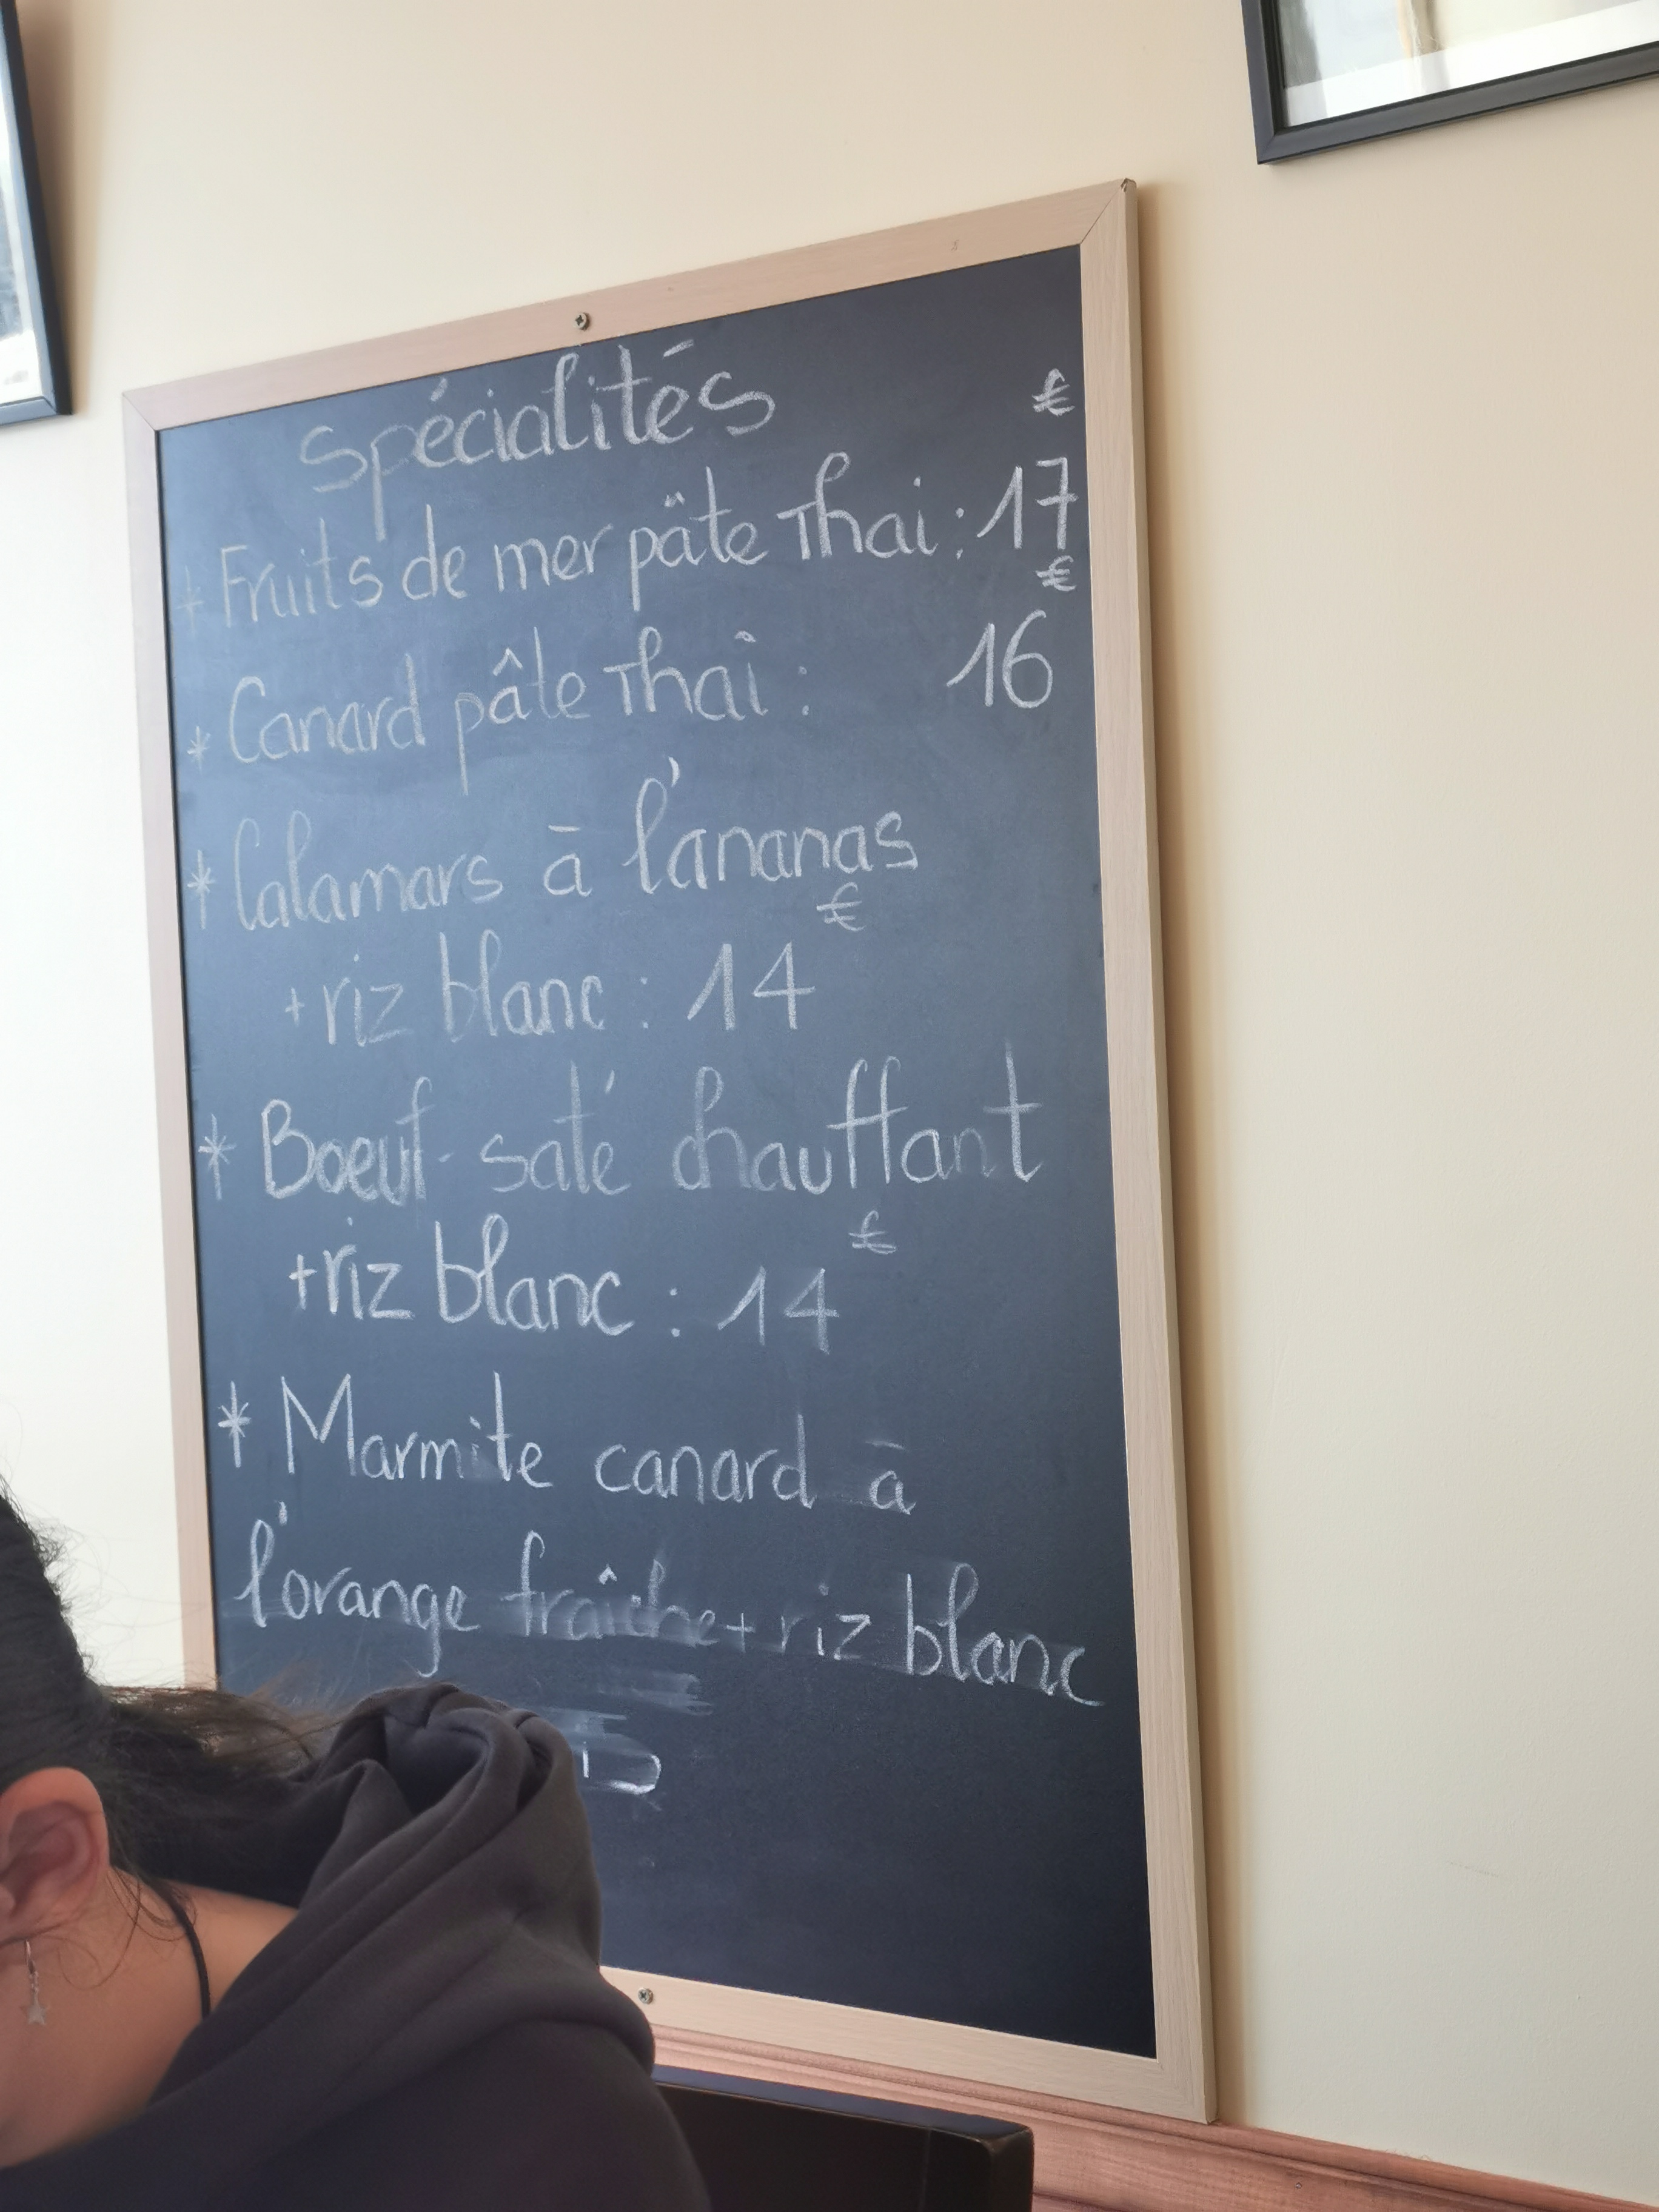 Spécialités
€
* Fruits de mer pâte Thai : 17
€
* Canard pâte Thai : 16
* Calamars à l'ananas
€
+ riz blanc : 14
* Boeuf saté chauffant
€
+ riz blanc : 14
* Marmite canard à
l'orange fraîche + riz blanc